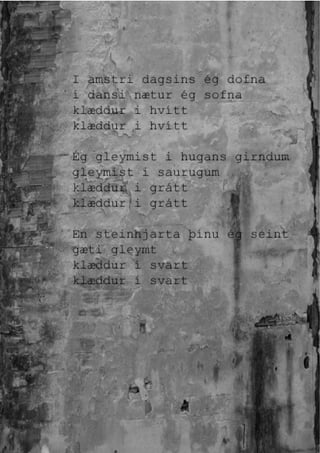 I amstri dagsins ég dofna
i dansi nætur ég sofna
klæddur i hvítt
klæddur i hvítt
Ég gleymist i hugans girndum
gleymist i saurugum
klæddur i grátt
klæddur i grátt
En steinhjarta þínu ég seint
gæti gleymt
klæddur i svart
klæddur i svart